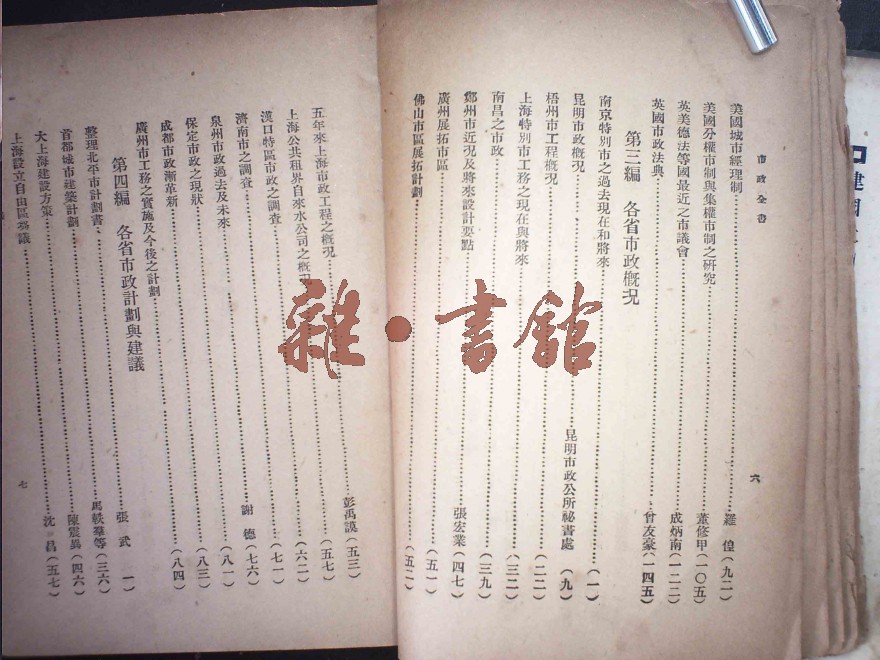 市政全書　六
美國城市經理制……羅　偟(九二)
美國分權市制與集權市制之硏究……董修甲(一〇五)
英美德法等國最近之市議會……成炳南(一二二)
英國市政法典……曾友豪(一四五)
第三編　各省市政概況
南京特別市之過去現在和將來……(一)
昆明市政概況……昆明市政公所祕書處(九)
梧州市工程概況……(二二)
上海特別市工務之現在與將來……(三二)
南昌之市政……(三九)
鄭州市近況及將來設計要點……張宏業(四七)
廣州展拓市區……(五一)
佛山市區展拓計劃……(五二)
五年來上海市政工程之槪況……彭禹謨(五三)
上海公共租界自來水公司之概況……(五七)
漢口特區市政之調查……(六二)
濟南市之調查……(七一)
泉州市政過去及未來……謝　德(七六)
保定市政之現狀……(八一)
成都市政漸革新……(八三)
廣州市工務之實施及今後之計劃……(八四)
第四編　各省市政計劃與建議
整理北平市計劃書……張　武　(一)
首都城市建築計劃……馬軼羣等(三六)
大上海建設方策……陳震異(四六)
上海設立自由區芻議……沈　昌(五七)
七
雜·書館
建國